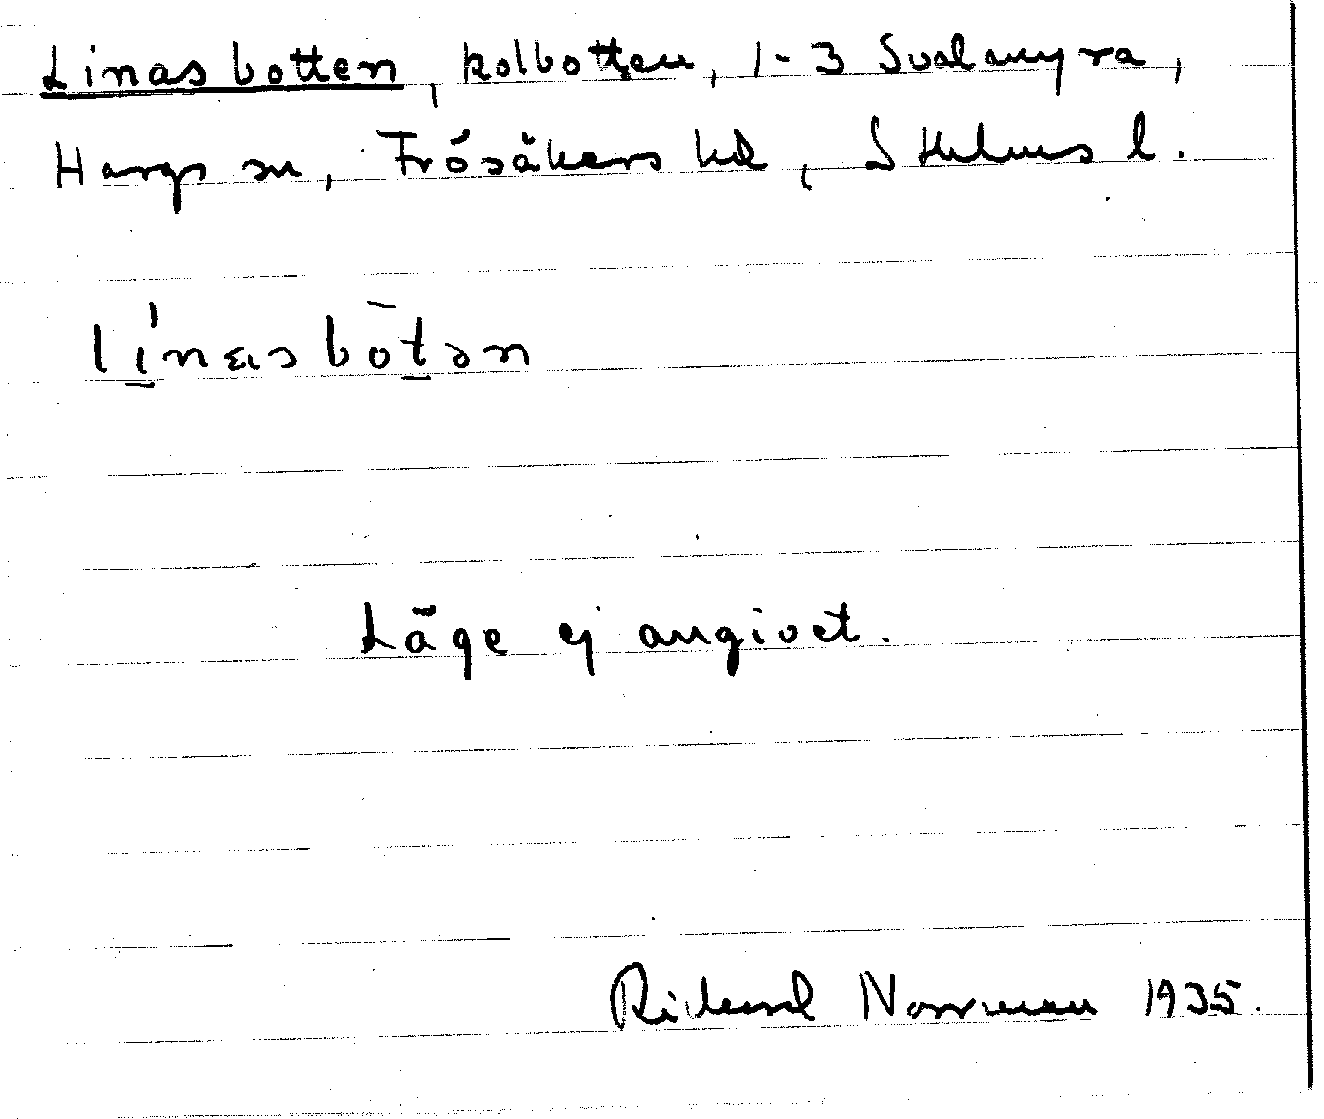 Linasbotten, kolbotten, 1-3 Svalmyra,
Hargs sn, Frösåkers hd, Sthlms l.
li̠'nasbo̅t̠ən
Läge ej angivet.
Rickard Norrman 1935.